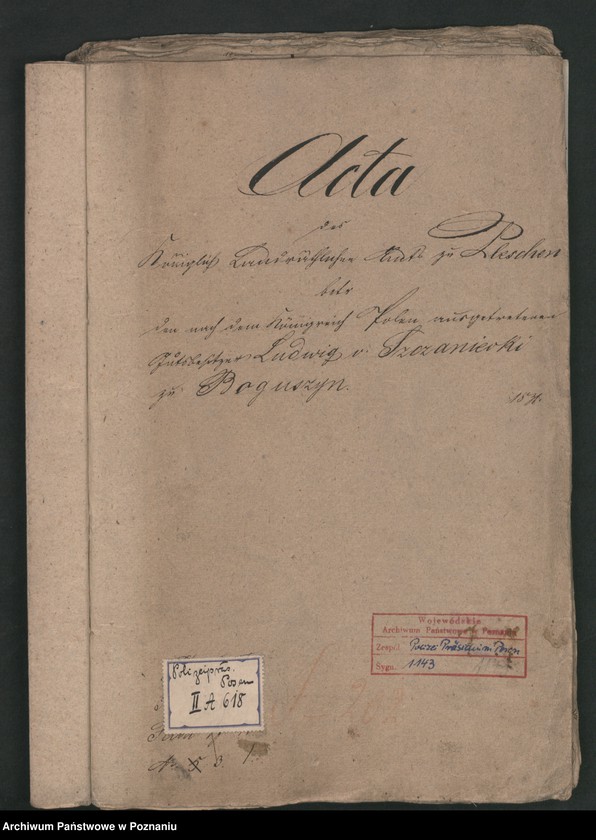 Acta
des
Königlich Landräthlichen Amts zu Pleschen
betr
den nach dem Königreich Polen ausgetretenen
Gutsbesitzer Ludwig v. Szczaniecki
zu Boguszyn.
Wojewódzkie
Archiwum Państwowe w Poznaniu
Zespół Polizei Präsidium Posen
Sygn. 1143
Polizeipräs.
Posen
II A 618
Archiwum Państwowe w Poznaniu